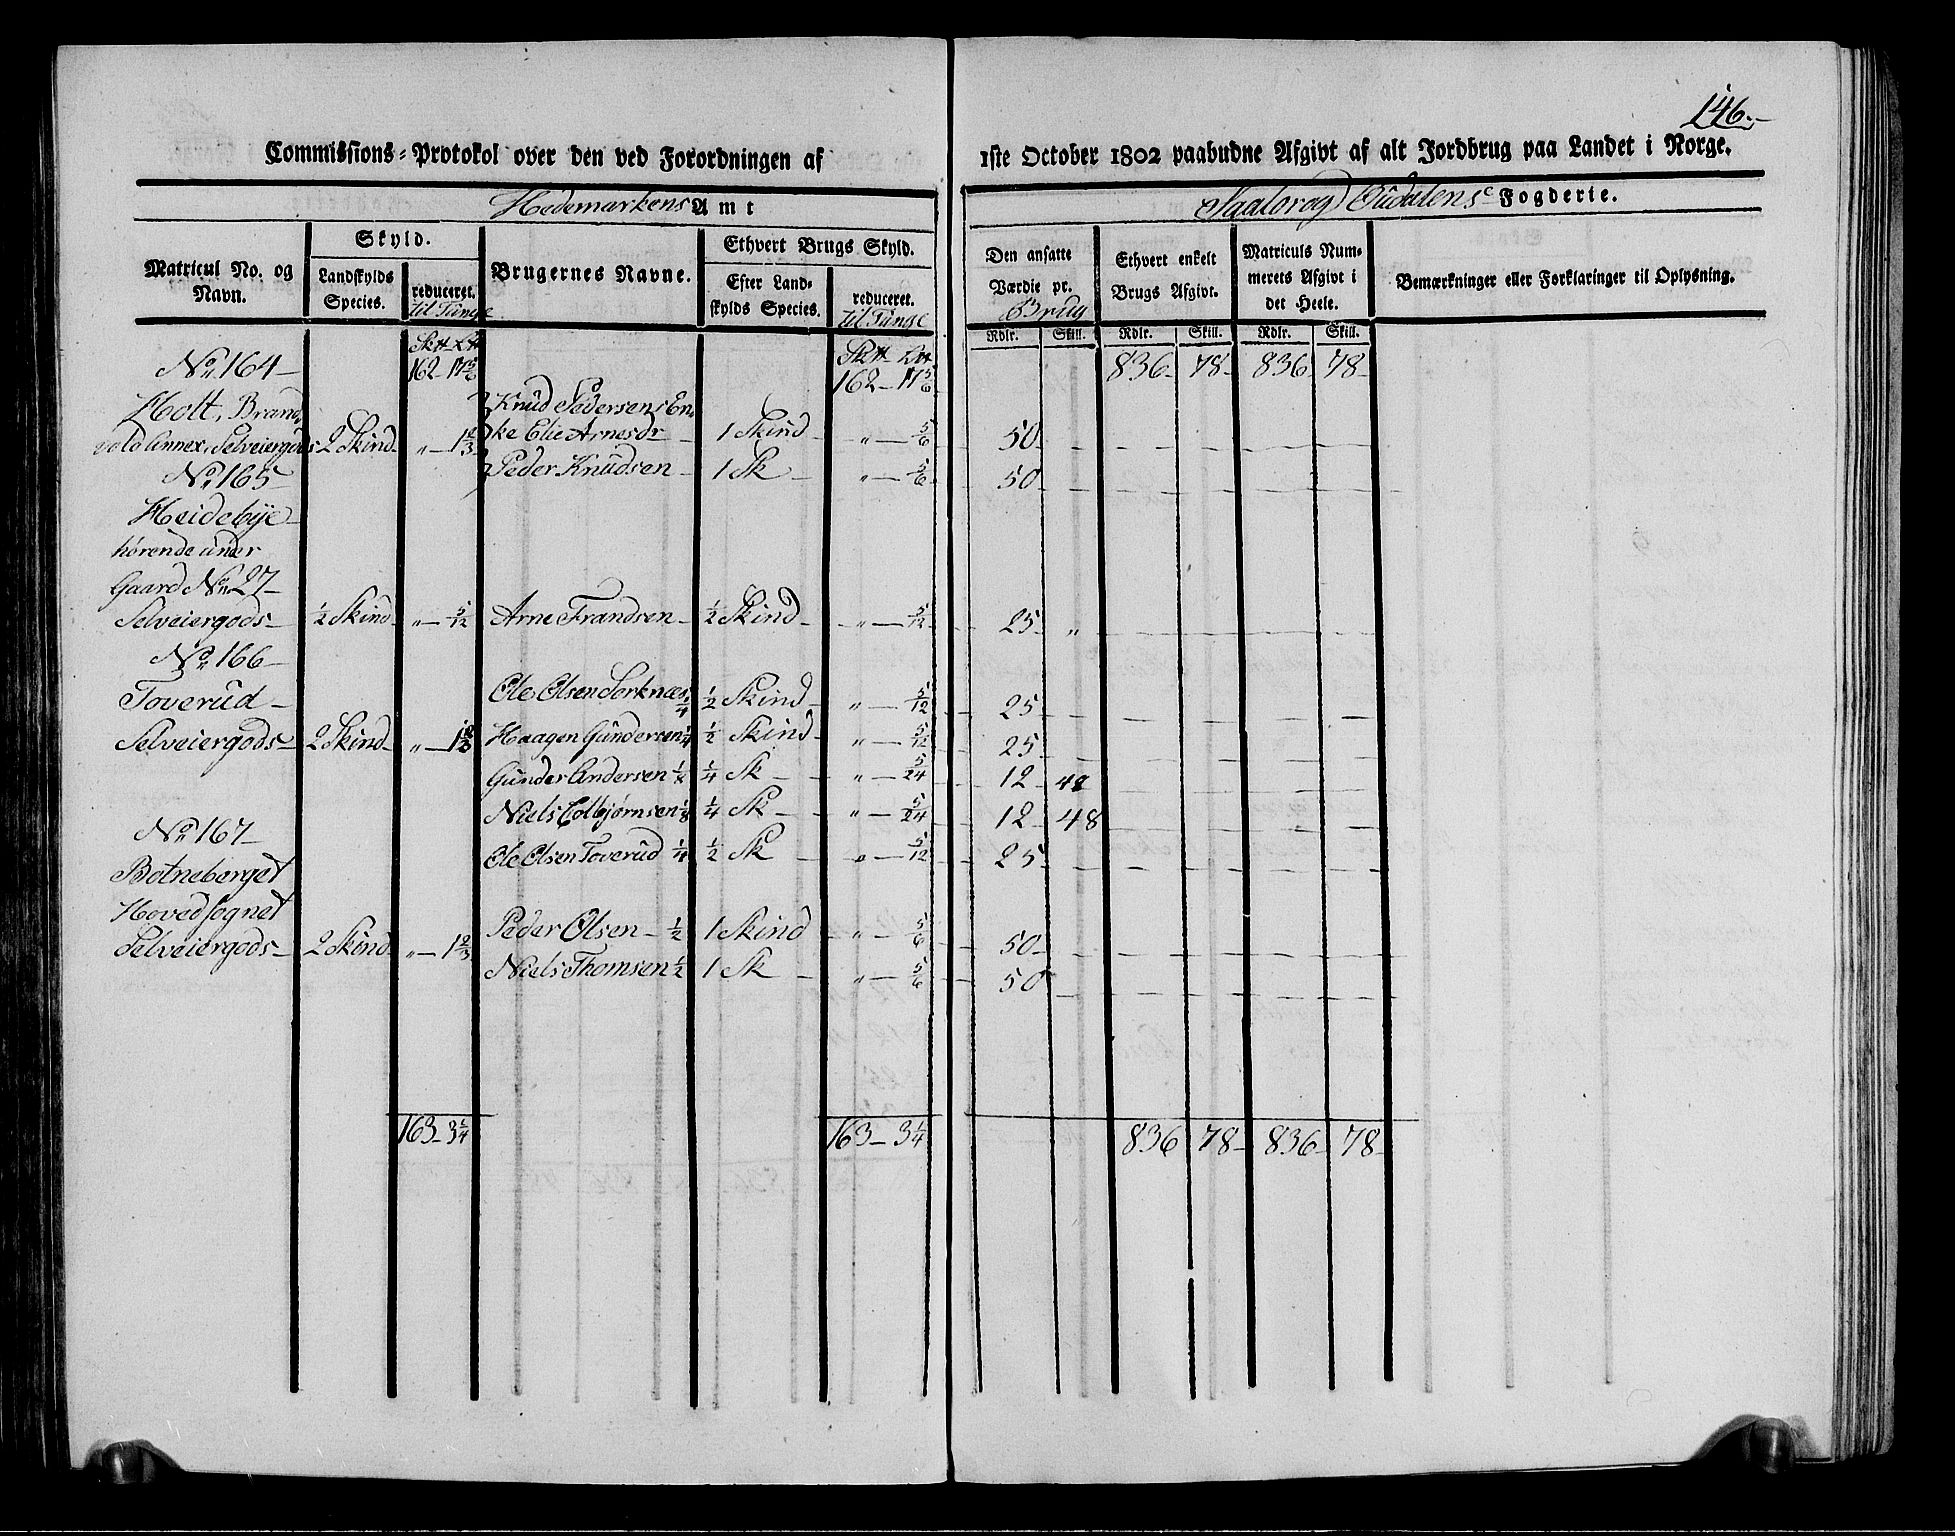 146.-
Commissions-Protokol over den ved Forordningen af 1ste October 1802 paabudne Afgivt af alt Jordbrug paa Landet i Norge.
Hedemarkens Amt
Østerdalens Fogderie.
Matricul No. og Navn.
Skyld.
Landskylds Species.
reduceret. til Tunge
Brugernes Navne.
Ethvert Brugs Skyld.
Efter Landskylds Species.
reduceret. til Tunge
Den ansatte Værdie pr. Brug
Ethvert enkelt Brugs Afgivt.
Matriculs Nummerets Afgivt i det Heele.
Bemærkninger eller Forklaringer til Oplysning.
Rdlr. Skill. Rdlr. Skill. Rdlr. Skill.
No 164 - 162 - 17 5/6 162 - 17 5/6 836 - 78 - 836 78 -
Holt, Brand Knud Pedersens En
vold Annex, Selveiergods 2 Skind - „ - 1 2/3 ke Elie Arnesdr - 1 Skind - „ - 5/6 50 -
No 165 - Peder Knudsen - 1 Sk - „ - 5/6 50 -
Heidebÿe -
hørende under
Gaard No 27 -
Selveiergods - 1/2 Skind - „ - 5/12 Arne Frandsen - 1/2 Skind - „ - 5/12 25 - „
No 166 -
Toverud - Ole Olsen Sorknæs 1/4 1/2 Skind - „ - 5/12 25 -
Selveiergods - 2 Skind - „ - 1 2/3 Haagen Gundersen 1/4 1/2 Skind - „ - 5/12 25 -
Gunder Andersen 1/8 1/4 Sk - „ - 5/24 12 48
Niels Colbjørnsen 1/8 1/4 Sk - „ - 5/24 12 48
No 167 -
Ole Olsen Toverud 1/4 1/2 Sk - „ - 5/12 25 -
Botneberget
Hovedsognet
Selveiergods - 2 Skind - „ - 1 2/3 Peder Olsen - 1/2 1 Skind - „ - 5/6 50 -
Niels Thomsen 1/2 1 Sk - „ - 5/6 50
163 - 3 1/4 163 - 3 1/4 836 78 - 836 - 78 -